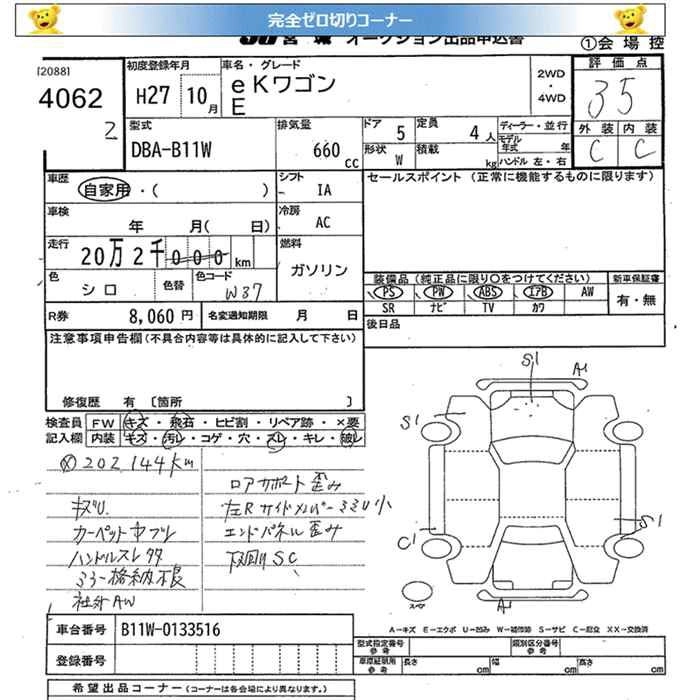 完全ゼロ切りコーナー
JU 宮城 オークション出品申込書
①会場控
[2088]
4062
2
初度登録年月
H27 10月
車名・グレード
eKワゴン
E
2WD
・
4WD
評価点
35
外装 内装
C C
型式
DBA-B11W
排気量
660 cc
ドア 5
形状 W
定員 4人
積載 kg
ディーラー・並行
モデル年式 年
ハンドル 左・右
車歴
自家用・( )
シフト
IA
車検
年 月( 日)
冷房
AC
走行
20万2千000km
燃料
ガソリン
色
シロ
色替
色コード
W37
R券 8,060円
名変通知期限 月 日
セールスポイント (正常に機能するものに限ります)
装備品 (純正品に限り○をつけてください)
PS PW ABS エアB AW
SR ナビ TV カワ
新車保証書
有・無
後日品
注意事項申告欄 (不具合内容等は具体的に記入して下さい)
修復歴 有 [箇所 ]
検査員
記入欄
FW キズ・飛石・ヒビ割・リペア跡・×要
内装 キズ・汚レ・コゲ・穴・スレ・キレ・破レ
202,144km
キズU.
カーペット
ハンドルスレ
ミラー格納不良
社外AW
ロアサポート歪み
左Rサイドメンバー ミミU小
エンドパネル歪み
下回りSC
S1
A1
S1
S1
C1
A1
スペア
A-キズ E-エクボ U-凹み W-補修跡 S-サビ C-腐食 XX-交換済
車台番号 B11W-0133516
登録番号
型式指定番号 参考
類別区分番号 参考
車庫証明用 参考
長さ cm 幅 cm 高さ cm
希望出品コーナー (コーナーは各会場により異なります。)